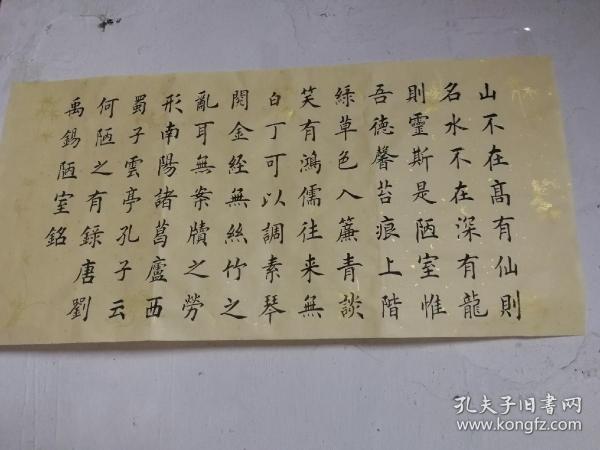 山不在高有仙則
名水不在深有龍
則靈斯是陋室惟
吾德馨苔痕上階
綠草色入簾青談
笑有鴻儒往来無
白丁可以調素琴
閱金經無絲竹之
亂耳無案牘之勞
形南陽諸葛廬西
蜀子雲亭孔子云
何陋之有錄唐劉
禹錫陋室銘
孔夫子旧书网
www.kongfz.com